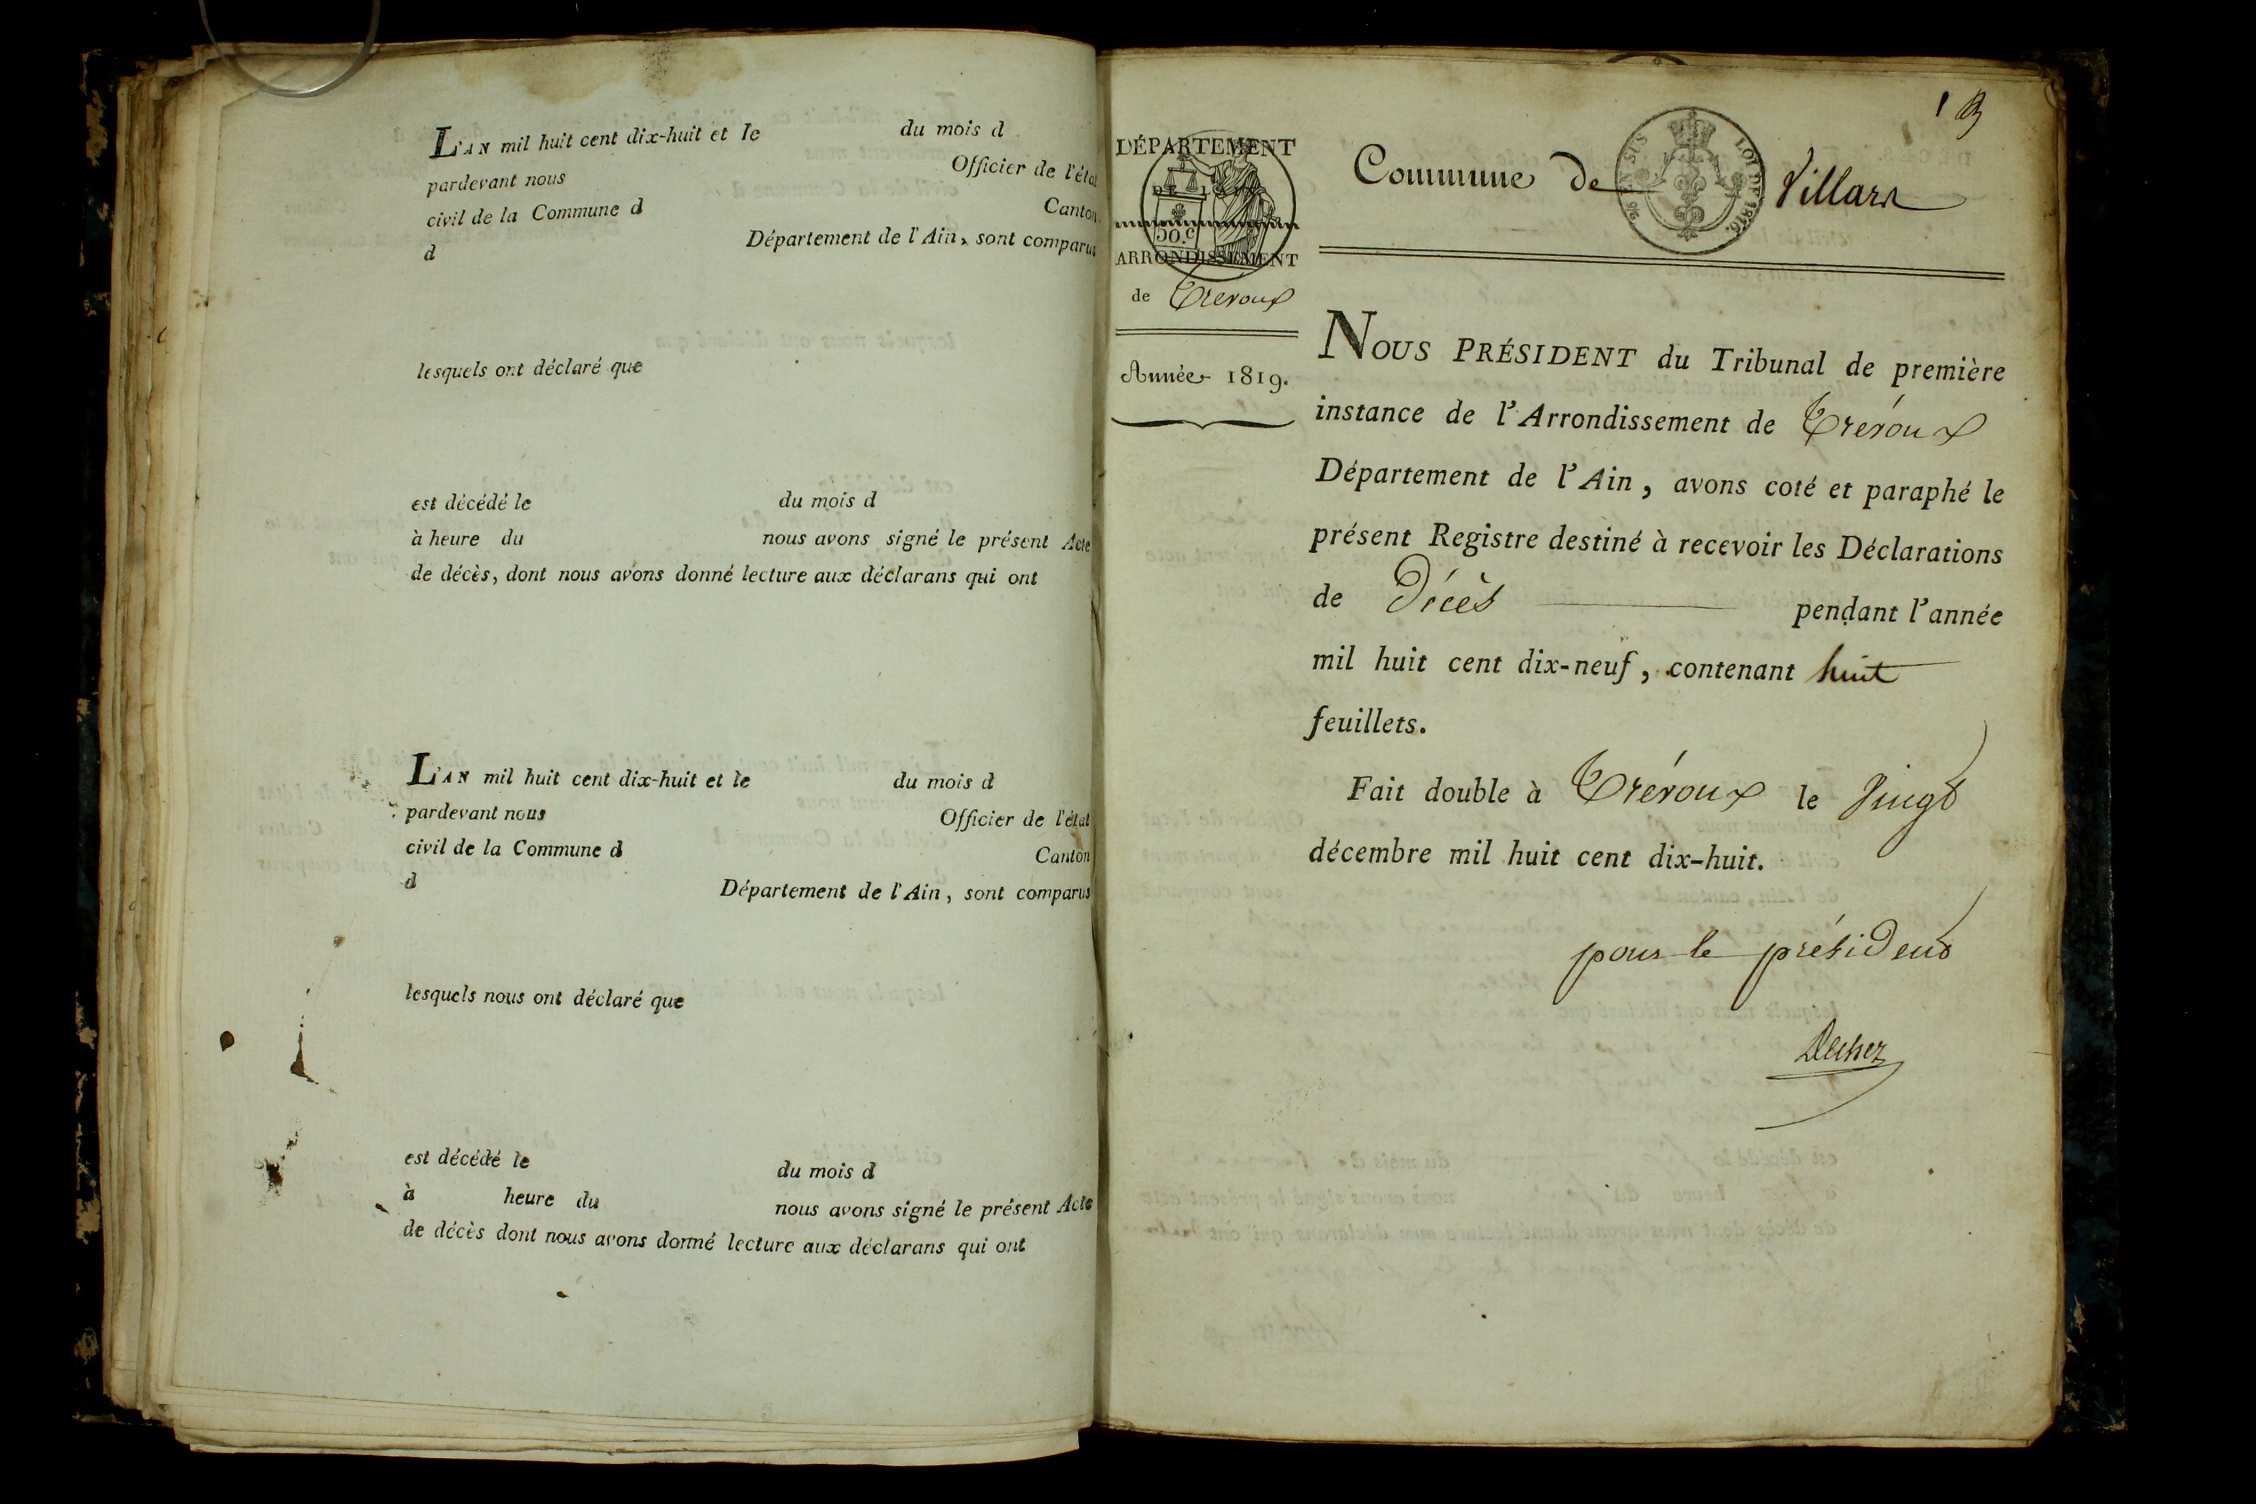 L'AN mil huit cent dix-huit et le du mois d
pardevant nous Officier de l'état
civil de la Commune d Canton
d Département de l'Ain, sont comparus
lesquels ont déclaré que
est décédé le du mois d
à heure du nous avons signé le présent Acte
de décès, dont nous avons donné lecture aux déclarans qui ont
L'AN mil huit cent dix-huit et le du mois d
pardevant nous Officier de l'état
civil de la Commune d Canton
d Département de l'Ain, sont comparus
lesquels nous ont déclaré que
est décédé le du mois d
à heure du nous avons signé le présent Acte
de décès dont nous avons donné lecture aux déclarans qui ont
1
DÉPARTEMENT
DE L'AIN
50.c
ARRONDISSEMENT
de Trévoux
Année 1819.
Commune de Villars
LOI DE 1816.
NOUS PRÉSIDENT du Tribunal de première
instance de l'Arrondissement de Trévoux
Département de l'Ain, avons coté et paraphé le
présent Registre destiné à recevoir les Déclarations
de Décès pendant l'année
mil huit cent dix-neuf, contenant huit
feuillets.
Fait double à Trévoux le vingt
décembre mil huit cent dix-huit.
pour le président